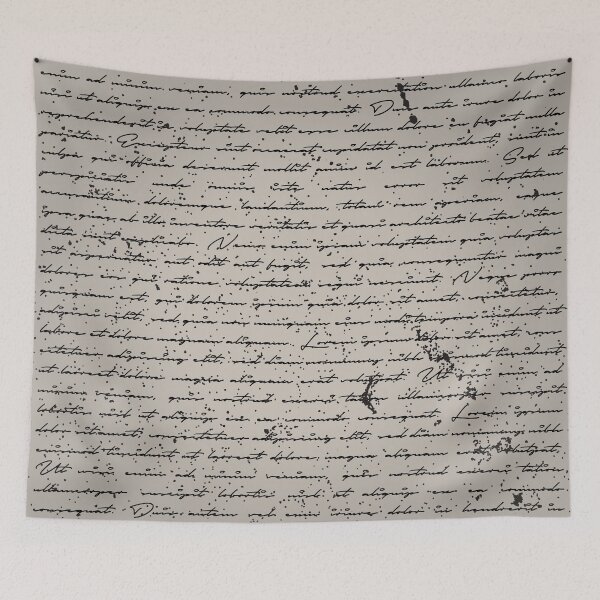 enim ad minim veniam, quis nostrud exercitation ullamco laboris
nisi ut aliquip ex ea commodo consequat. Duis aute irure dolor in
reprehenderit in voluptate velit esse cillum dolore eu fugiat nulla
pariatur. Excepteur sint occaecat cupidatat non proident, sunt in
culpa qui officia deserunt mollit anim id est laborum. Sed ut
perspiciatis unde omnis iste natus error sit voluptatem
accusantium doloremque laudantium, totam rem aperiam, eaque
ipsa quae ab illo inventore veritatis et quasi architecto beatae vitae
dicta sunt explicabo. Nemo enim ipsam voluptatem quia voluptas
sit aspernatur aut odit aut fugit, sed quia consequuntur magni
dolores eos qui ratione voluptatem sequi nesciunt. Neque porro
quisquam est, qui dolorem ipsum quia dolor sit amet, consectetur,
adipisci velit, sed quia non numquam eius modi tempora incidunt ut
labore et dolore magnam aliquam. Lorem ipsum dolor sit amet, cons
ectetuer adipiscing elit, sed diam nonummy nibh euismod tincidunt
ut laoreet dolore magna aliquam erat volutpat. Ut wisi enim ad
minim veniam, quis nostrud exerci tation ullamcorper suscipit
lobortis nisl ut aliquip ex ea commodo consequat. Lorem ipsum
dolor sit amet, consectetuer adipiscing elit, sed diam nonummy nibh
euismod tincidunt ut laoreet dolore magna aliquam erat volutpat.
Ut wisi enim ad minim veniam, quis nostrud exerci tation
ullamcorper suscipit lobortis nisl ut aliquip ex ea commodo
consequat. Duis autem vel eum iriure dolor in hendrerit in